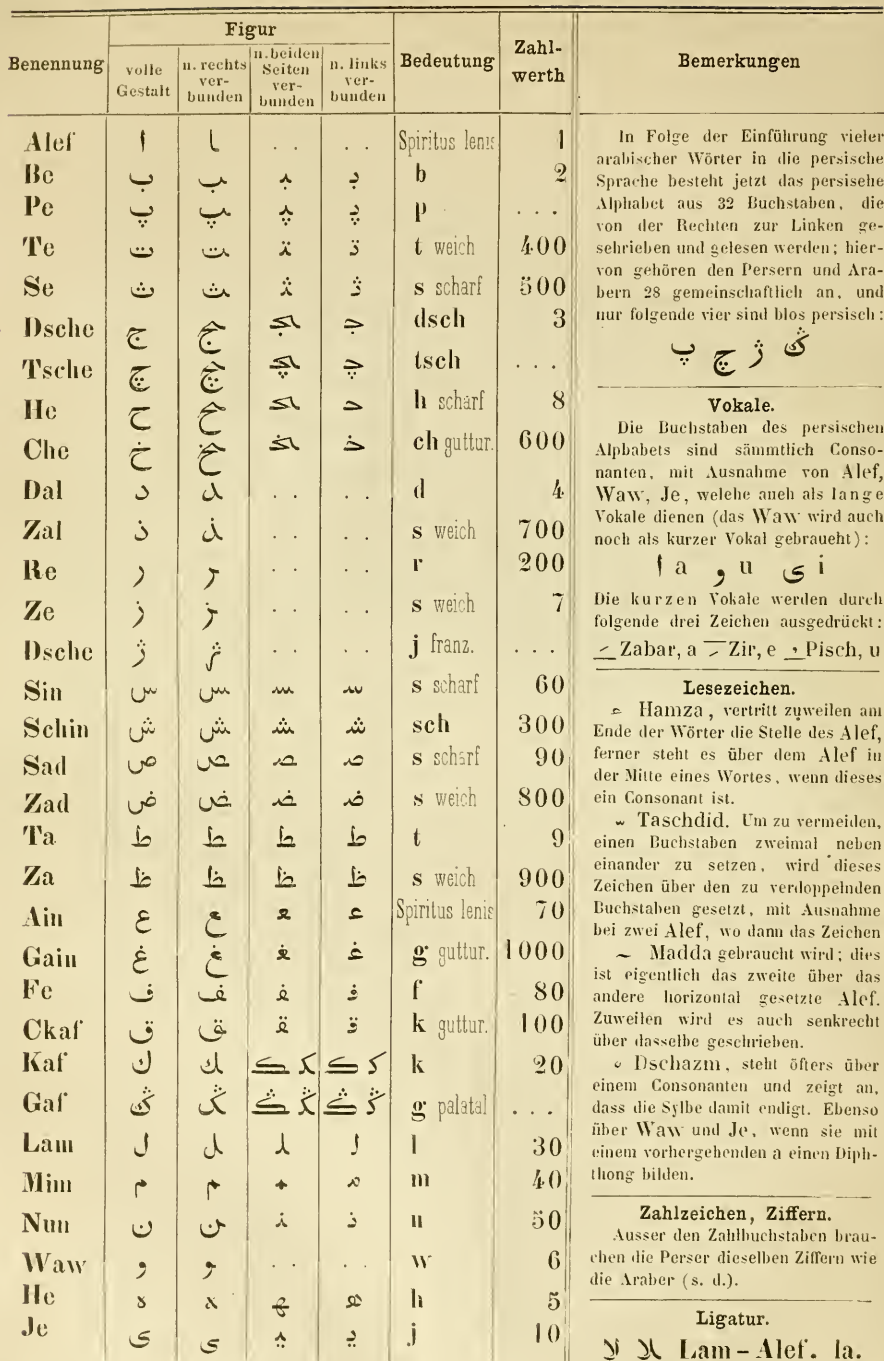 Benennung
Figur
volle Gestalt
n. rechts verbunden
n. beiden Seiten verbunden
n. links verbunden
Bedeutung
Zahlwerth
Bemerkungen
Alef ا ـا . . . . Spiritus lenis 1
Be ب ـب ـبـ بـ b 2
Pe پ ـپ ـپـ پـ p . . .
Te ت ـت ـتـ تـ t weich 400
Se ث ـث ـثـ ثـ s scharf 500
Dsche ج ـج ـجـ جـ dsch 3
Tsche چ ـچ ـچـ چـ tsch . . .
He ح ـح ـحـ حـ h scharf 8
Che خ ـخ ـخـ خـ ch guttur. 600
Dal د ـد . . . . d 4
Zal ذ ـذ . . . . s weich 700
Re ر ـر . . . . r 200
Ze ز ـز . . . . s weich 7
Dsche ژ ـژ . . . . j franz. . . .
Sin س ـس ـسـ سـ s scharf 60
Schin ش ـش ـشـ شـ sch 300
Sad ص ـص ـصـ صـ s scharf 90
Zad ض ـض ـضـ ضـ s weich 800
Ta ط ـط ـطـ طـ t 9
Za ظ ـظ ـظـ ظـ s weich 900
Ain ع ـع ـعـ عـ Spiritus lenis 70
Gain غ ـغ ـغـ غـ g guttur. 1000
Fe ف ـف ـفـ فـ f 80
Ckaf ق ـق ـقـ قـ k guttur. 100
Kaf ك ـك ـكـ كـ k 20
Gaf ڭ ـڭ ـڭـ ڭـ g palatal . . .
Lam ل ـل ـلـ لـ l 30
Mim م ـم ـمـ مـ m 40
Nun ن ـن ـنـ نـ n 50
Waw و ـو . . . . w 6
He ه ـه ـهـ هـ h 5
Je ى ـى ـيـ يـ j 10
In Folge der Einführung vieler
arabischer Wörter in die persische
Sprache besteht jetzt das persische
Alphabet aus 32 Buchstaben, die
von der Rechten zur Linken ge-
schrieben und gelesen werden; hier-
von gehören den Persern und Ara-
bern 28 gemeinschaftlich an, und
nur folgende vier sind blos persisch:
پ چ ژ ڭ
Vokale.
Die Buchstaben des persischen
Alphabets sind sämmtlich Conso-
nanten, mit Ausnahme von Alef,
Waw, Je, welche auch als lange
Vokale dienen (das Waw wird auch
noch als kurzer Vokal gebraucht):
ا a و u ى i
Die kurzen Vokale werden durch
folgende drei Zeichen ausgedrückt:
ـَ Zabar, a ـِ Zir, e ـُ Pisch, u
Lesezeichen.
ء Hamza, vertritt zuweilen am
Ende der Wörter die Stelle des Alef,
ferner steht es über dem Alef in
der Mitte eines Wortes, wenn dieses
ein Consonant ist.
ّ Taschdid. Um zu vermeiden,
einen Buchstaben zweimal neben
einander zu setzen, wird dieses
Zeichen über den zu verdoppelnden
Buchstaben gesetzt, mit Ausnahme
bei zwei Alef, wo dann das Zeichen
ٓ Madda gebraucht wird; dies
ist eigentlich das zweite über das
andere horizontal gesetzte Alef.
Zuweilen wird es auch senkrecht
über dasselbe geschrieben.
ْ Dschazm, steht öfters über
einem Consonanten und zeigt an,
dass die Sylbe damit endigt. Ebenso
über Waw und Je, wenn sie mit
einem vorhergehenden a einen Diph-
thong bilden.
Zahlzeichen, Ziffern.
Ausser den Zahlbuchstaben brau-
chen die Perser dieselben Ziffern wie
die Araber (s. d.).
Ligatur.
لا ـلا Lam-Alef. la.